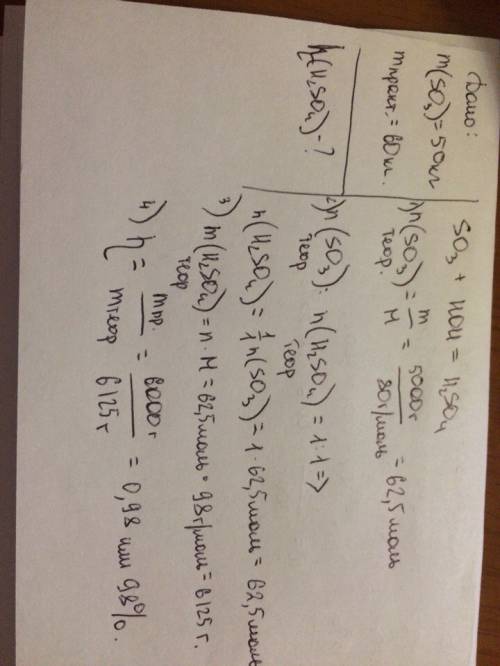 Дано:
m(SO₃)=50кг
mпракт.=60кг.
η(H₂SO₄)-?
SO₃ + HOH = H₂SO₄
1) n(SO₃) теор. = m/M = 5000г/80г/моль = 62,5моль
2) n(SO₃) теор : n(H₂SO₄) теор = 1:1=>
n(H₂SO₄) = 1/1 n(SO₃) = 1·62,5моль = 62,5моль
3) m(H₂SO₄) теор = n·M = 62,5моль·98г/моль = 6125г.
4) η = mпр./mтеор = 6000г/6125г = 0,98 или 98%.